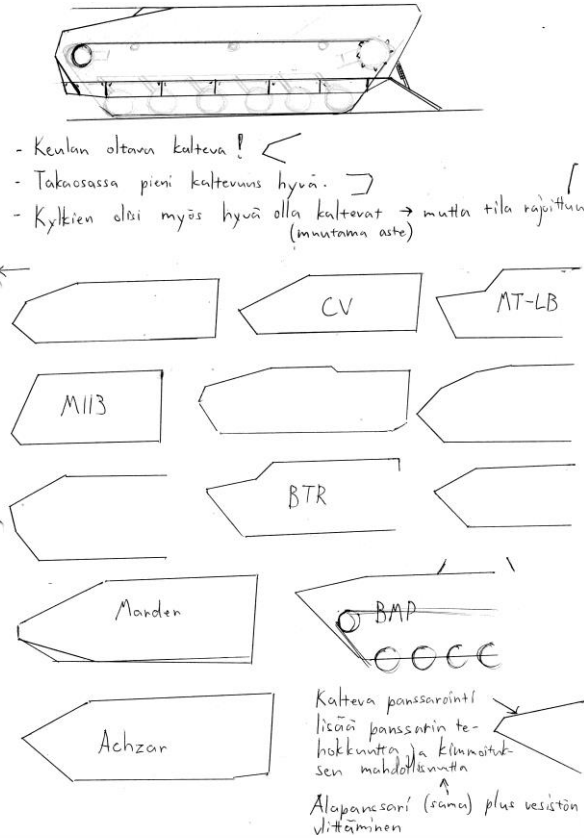 - Keulan oltava kalteva!
- Takaosassa pieni kaltevuus hyvä.
- Kylkien olisi myös hyvä olla kaltevat → mutta tila rajoittuu
(muutama aste)
CV
MT-LB
M113
BTR
Marder
BMP
Achzar
Kalteva panssarointi
lisää panssarin te-
hokkuutta ja kimmoituk-
sen mahdollisuutta
Alapanssari (sama) plus vesistön
ylittäminen